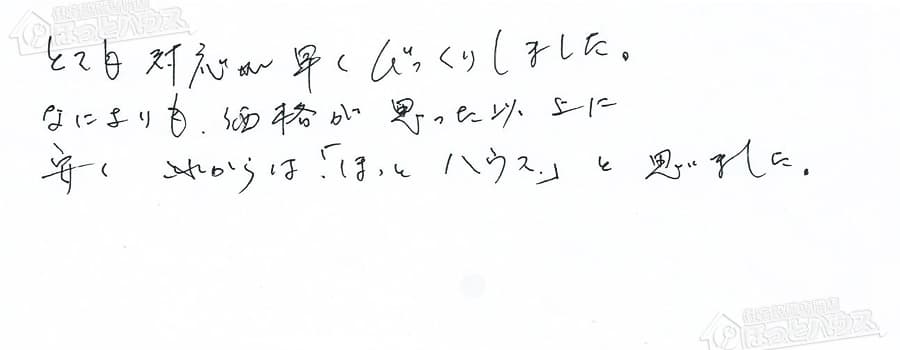 とても対応が早くびっくりしました。
なによりも、価格が思った以上に
安く これからは「ほっとハウス」と思いました。
ほっとハウス
ほっとハウス